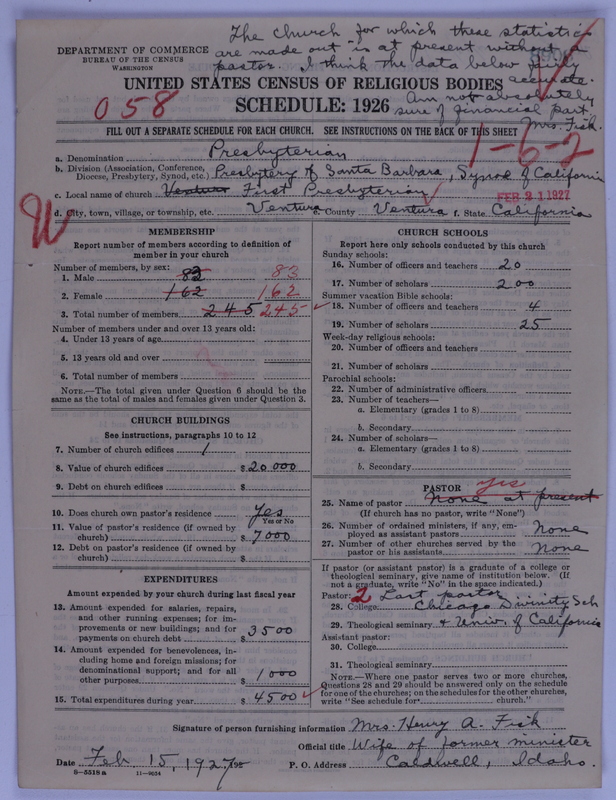 The Church for which these statistics
are made out is at present without a
pastor. I think the data below fairly
accurate.
Am not absolutely
sure of financial part.
Mrs. Fisk.
DEPARTMENT OF COMMERCE
BUREAU OF THE CENSUS
WASHINGTON
UNITED STATES CENSUS OF RELIGIOUS BODIES
SCHEDULE: 1926
058
FILL OUT A SEPARATE SCHEDULE FOR EACH CHURCH. SEE INSTRUCTIONS ON THE BACK OF THIS SHEET
1-6-2
a. Denomination Presbyterian
b. Division (Association, Conference, Diocese, Presbytery, Synod, etc.) Presbytery of Santa Barbara, Synod of California
c. Local name of church Ventura First Presbyterian
FEB 21 1927
d. City, town, village, or township, etc. Ventura e. County Ventura f. State California
W
MEMBERSHIP
Report number of members according to definition of
member in your church
Number of members, by sex:
1. Male 83 83
2. Female 162 162
3. Total number of members 245 245
Number of members under and over 13 years old:
4. Under 13 years of age
5. 13 years old and over
6. Total number of members
NOTE.—The total given under Question 6 should be the
same as the total of males and females given under Question 3.
CHURCH BUILDINGS
See instructions, paragraphs 10 to 12
7. Number of church edifices 1
8. Value of church edifices $20000
9. Debt on church edifices $
10. Does church own pastor's residence? Yes
Yes or No
11. Value of pastor's residence (if owned by
church) $ 7000
12. Debt on pastor's residence (if owned by
church) $
EXPENDITURES
Amount expended by your church during last fiscal year
13. Amount expended for salaries, repairs,
and other running expenses; for im-
provements or new buildings; and for
payments on church debt $ 3500
14. Amount expended for benevolences, in-
cluding home and foreign missions; for
denominational support; and for all
other purposes $ 1000
15. Total expenditures during year $ 4500
CHURCH SCHOOLS
Report here only schools conducted by this church
Sunday schools:
16. Number of officers and teachers 20
17. Number of scholars 200
Summer vacation Bible schools:
18. Number of officers and teachers 4
19. Number of scholars 25
Week-day religious schools:
20. Number of officers and teachers
21. Number of scholars
Parochial schools:
22. Number of administrative officers
23. Number of teachers—
a. Elementary (grades 1 to 8)
b. Secondary
24. Number of scholars—
a. Elementary (grades 1 to 8)
b. Secondary
PASTOR yes
25. Name of pastor None at present
(If church has no pastor, write "None")
26. Number of ordained ministers, if any, em-
ployed as assistant pastors None
27. Number of other churches served by the
pastor or his assistants None
If pastor (or assistant pastor) is a graduate of a college or
theological seminary, give name of institution below. (If
not a graduate, write "No" in the space indicated.)
Pastor: 2 Last pastor
28. College Chicago Divinity Sch
29. Theological seminary & Univ. of California
Assistant pastor:
30. College
31. Theological seminary
NOTE.—Where one pastor serves two or more churches,
Questions 28 and 29 should be answered only on the schedule
for one of the churches; on the schedules for the other churches,
write "See schedule for church."
Signature of person furnishing information Mrs. Henry A. Fisk
Official title Wife of former minister
Date Feb 15, 1927 P. O. Address Caldwell, Idaho.
8-5518a 11-9034